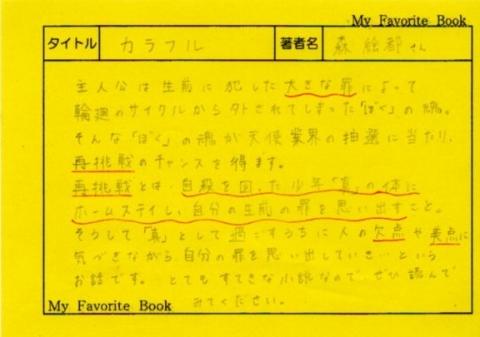 My Favorite Book
タイトル カラフル 著者名 森絵都さん
主人公は生前に犯した大きな罪によって
輪廻のサイクルから外されてしまった「ぼく」の魂。
そんな「ぼく」の魂が天使業界の抽選に当たり、
再挑戦のチャンスを得ます。
再挑戦とは、自殺を図った少年「真」の体に
ホームステイし、自分の生前の罪を思い出すこと。
そうして「真」として過ごすうちに人の欠点や美点に
気づきながら自分の罪を思い出していきいという
お話です。とてもすてきな小説なので、ぜひ読んで
みてください。
My Favorite Book